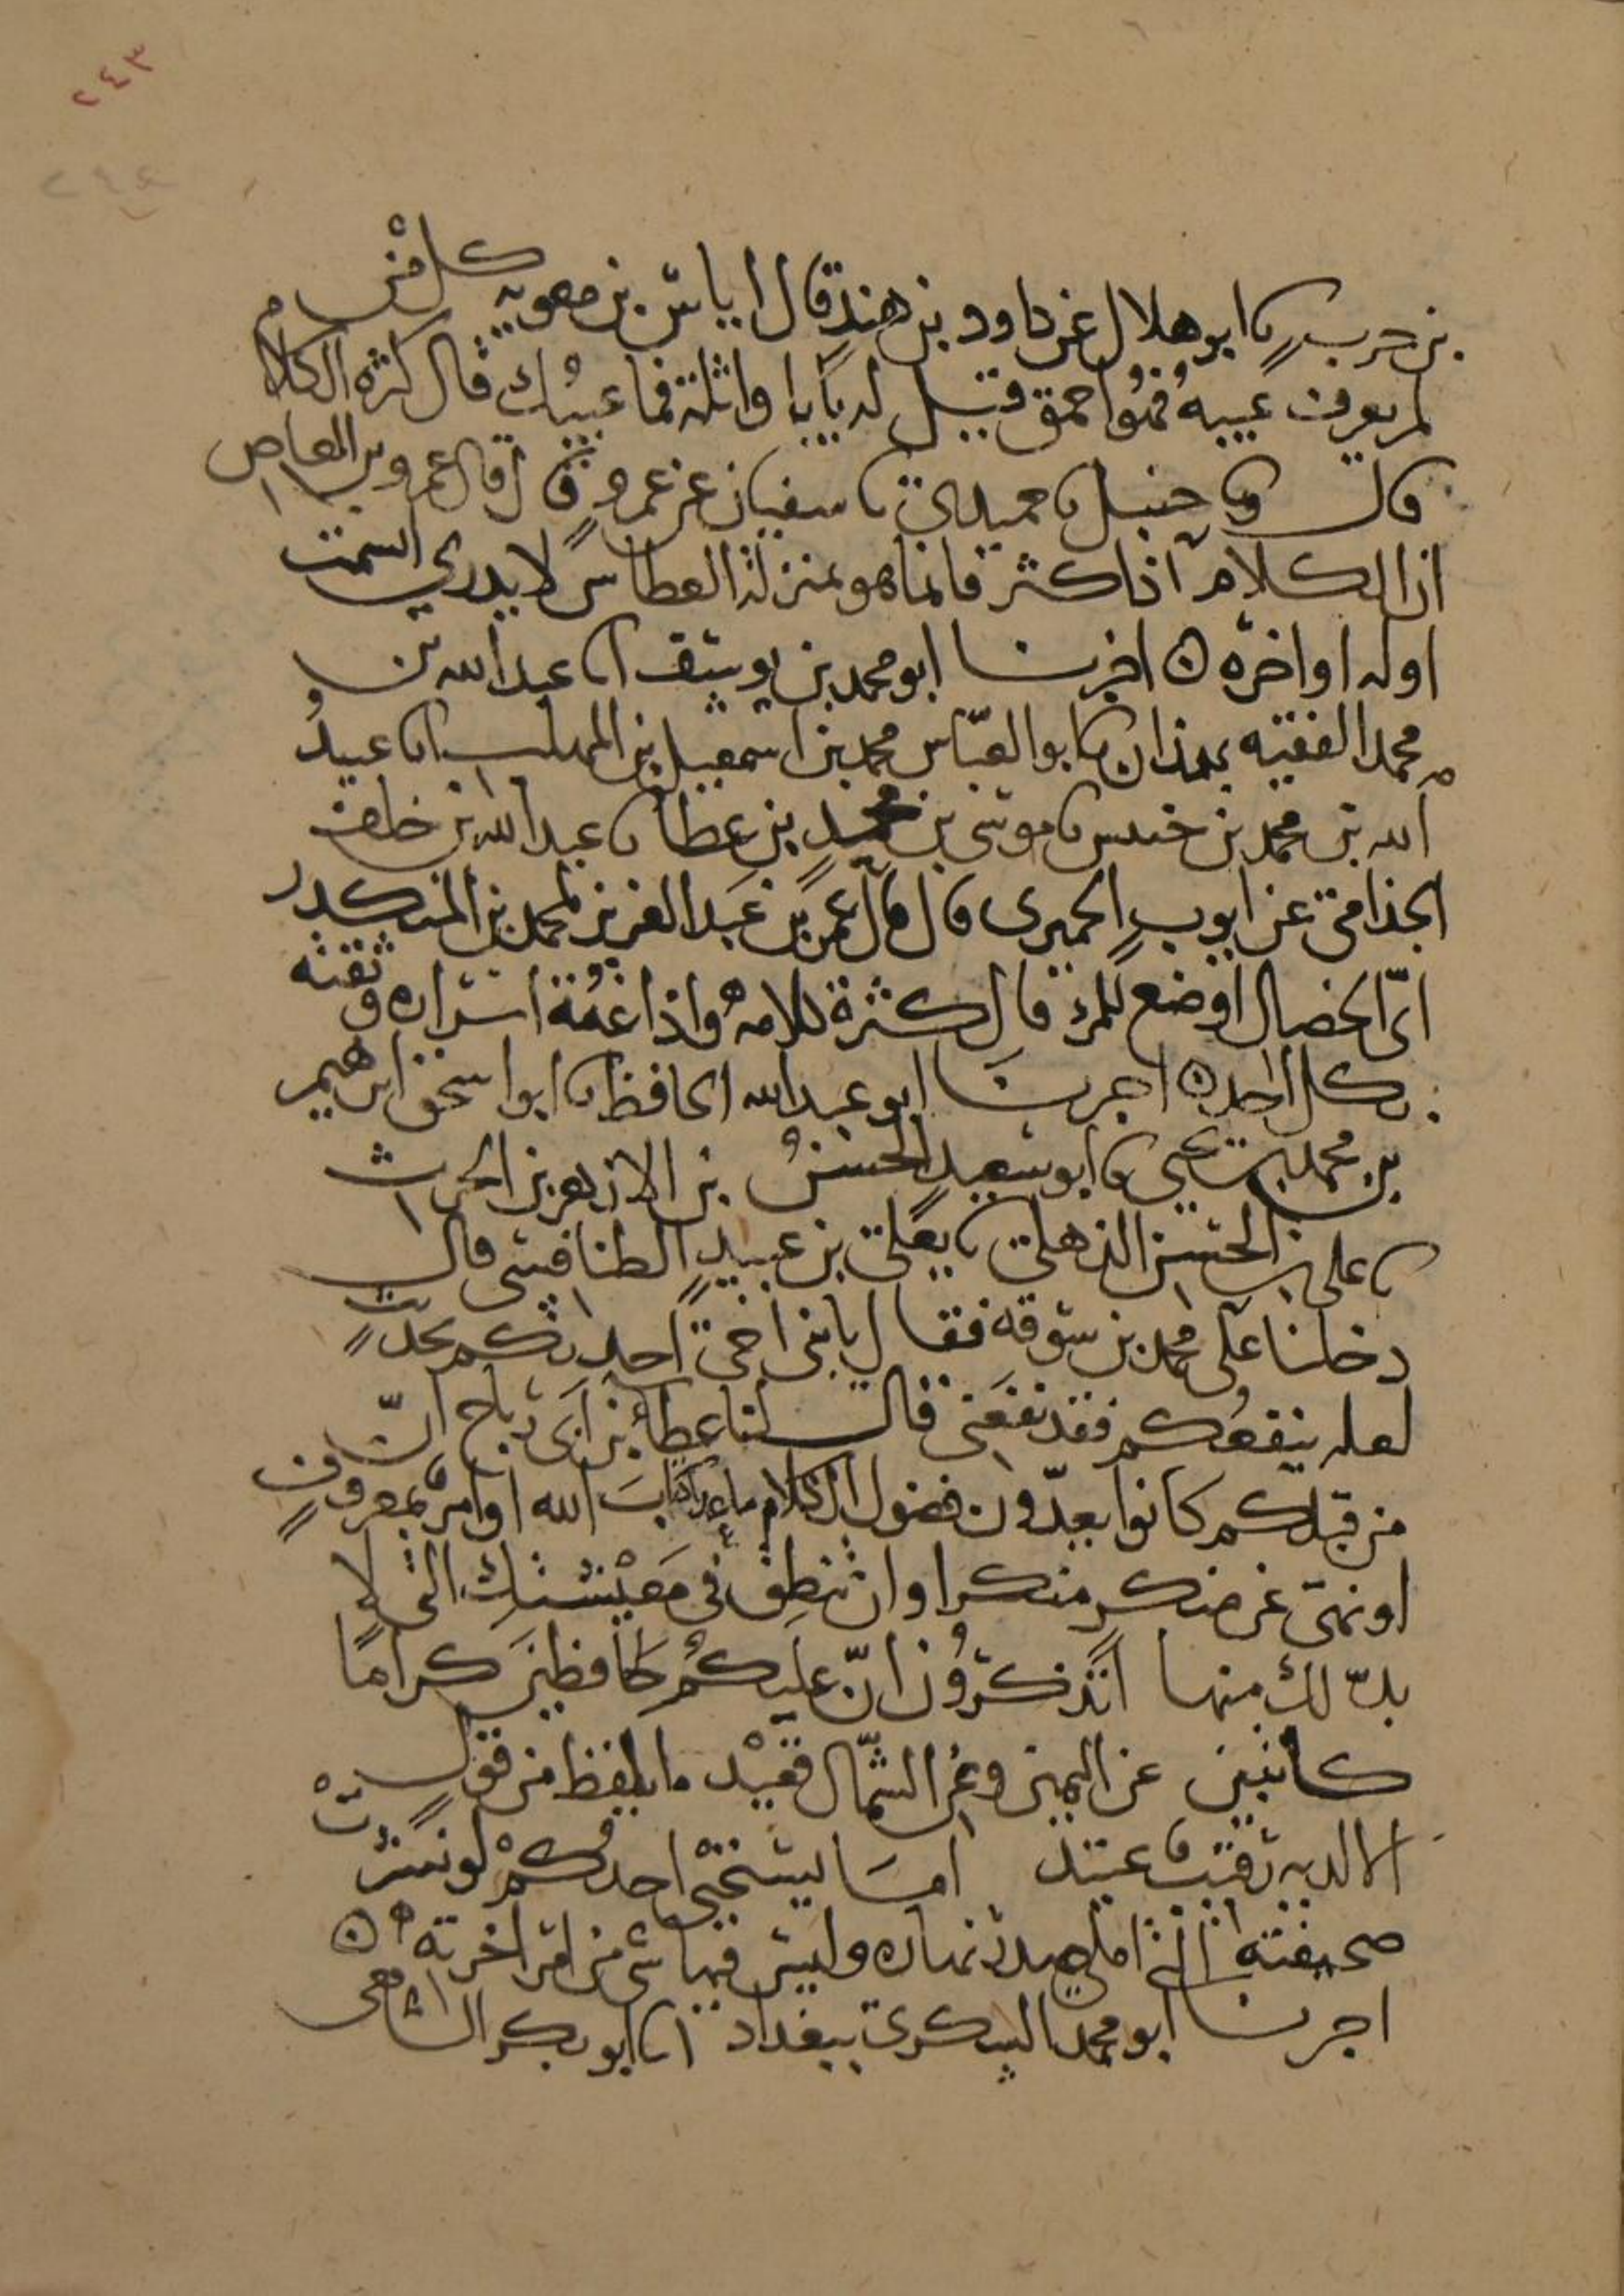 ٢٤٣
٢٤٤
بن حرب نا ابو هلال عن داود بن هند قال اياس بن معويه كل من
لم يعرف عيبه فهو احمق قيل له يابا واثلة فما عيبك قال كثره الكلام
قال ونا حنبل نا حميدي نا سفيان عن عمرو قال قال عمرو بن العاص
ان الكلام اذا كثر فانما هو بمنزلة العطاس لا يدري السمت
اوله او اخره ه اخبرنا ابو محمد بن يوسف انا عبد الله بن
محمد الفقيه بهمذان نا ابو العباس محمد بن اسمعيل بن المهلب نا عبيد
الله بن محمد بن خنيس نا موسى بن محمد بن عطا نا عبد الله بن خلف
الجذامي عن ايوب الحميرى قال قال عمر بن عبد العزيز لمحمد بن المنكدر
اىّ الخصال اوضع للمرء قال كثرة كلامه واذاعة اسراره وثقته
بكل احد ه اخبرنا ابو عبد الله الحافظ نا ابو اسحق ابرهيم
بن محمد بن يحيى نا ابو سعيد الحسن بن الازهر بن الحرث
نا على بن الحسن الذهلي نا يعلى بن عبيد الطنافسي قال
دخلنا على محمد بن سوقه فقال يا بنى اخي احدثكم بحديث
لعله ينفعكم فقد نفعنى قال لنا عطاء بن ابى رباح انّ
من قبلكم كانوا يعدّون فضول الكلام ما عدا كتاب الله او امر بمعروف
او نهى عن منكر منكرا وان تنطق في معيشتك التي لا
بدّ لك منها اتذكرون انّ عليكم لحافظين كراما
كاتبين عن اليمين وعن الشمال قعيد ما يلفظ من قول
الا لديه رقيب عتيد اما يستحيي احدكم لو نشرت
صحيفته التي املى صدر نهاره وليس فيها شى من امر اخرته ه
اخبرنا ابو محمد السكري ببغداد انا ابو بكر الشافعى